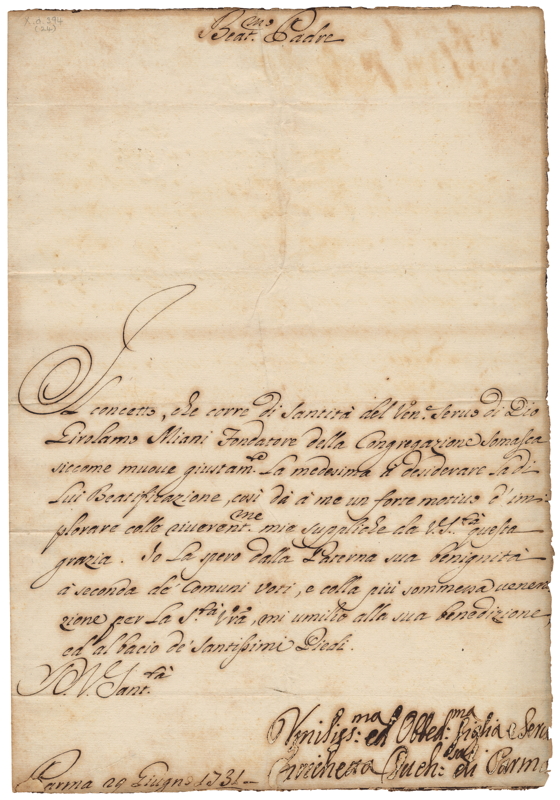 X.d.394
(24)
Beat.mo Padre
Il concetto, che corre di Santità del Ven.e Servo di Dio
Girolamo Miani Fondatore della Congregazione Somasca
siccome muove giustam.te La medesima à desiderare la di
Lui Beatificazione, così dà à me un forte motivo d'im-
plorare colle riverent.me mie suppliche da V. S.tà questa
grazia. Io La spero dalla Paterna sua benignità
à seconda de' Comuni Voti, e colla più sommessa venera-
zione per la S.tà Vrã, mi umilio alla sua benedizione,
ed al bacio de' Santissimi Piedi.
D V. Sant.tà
Umiliss:ma ed Obbed:ma Figlia e Serva
Enrichetta Duch:ssa di Parma
Parma 29 Giugno 1731